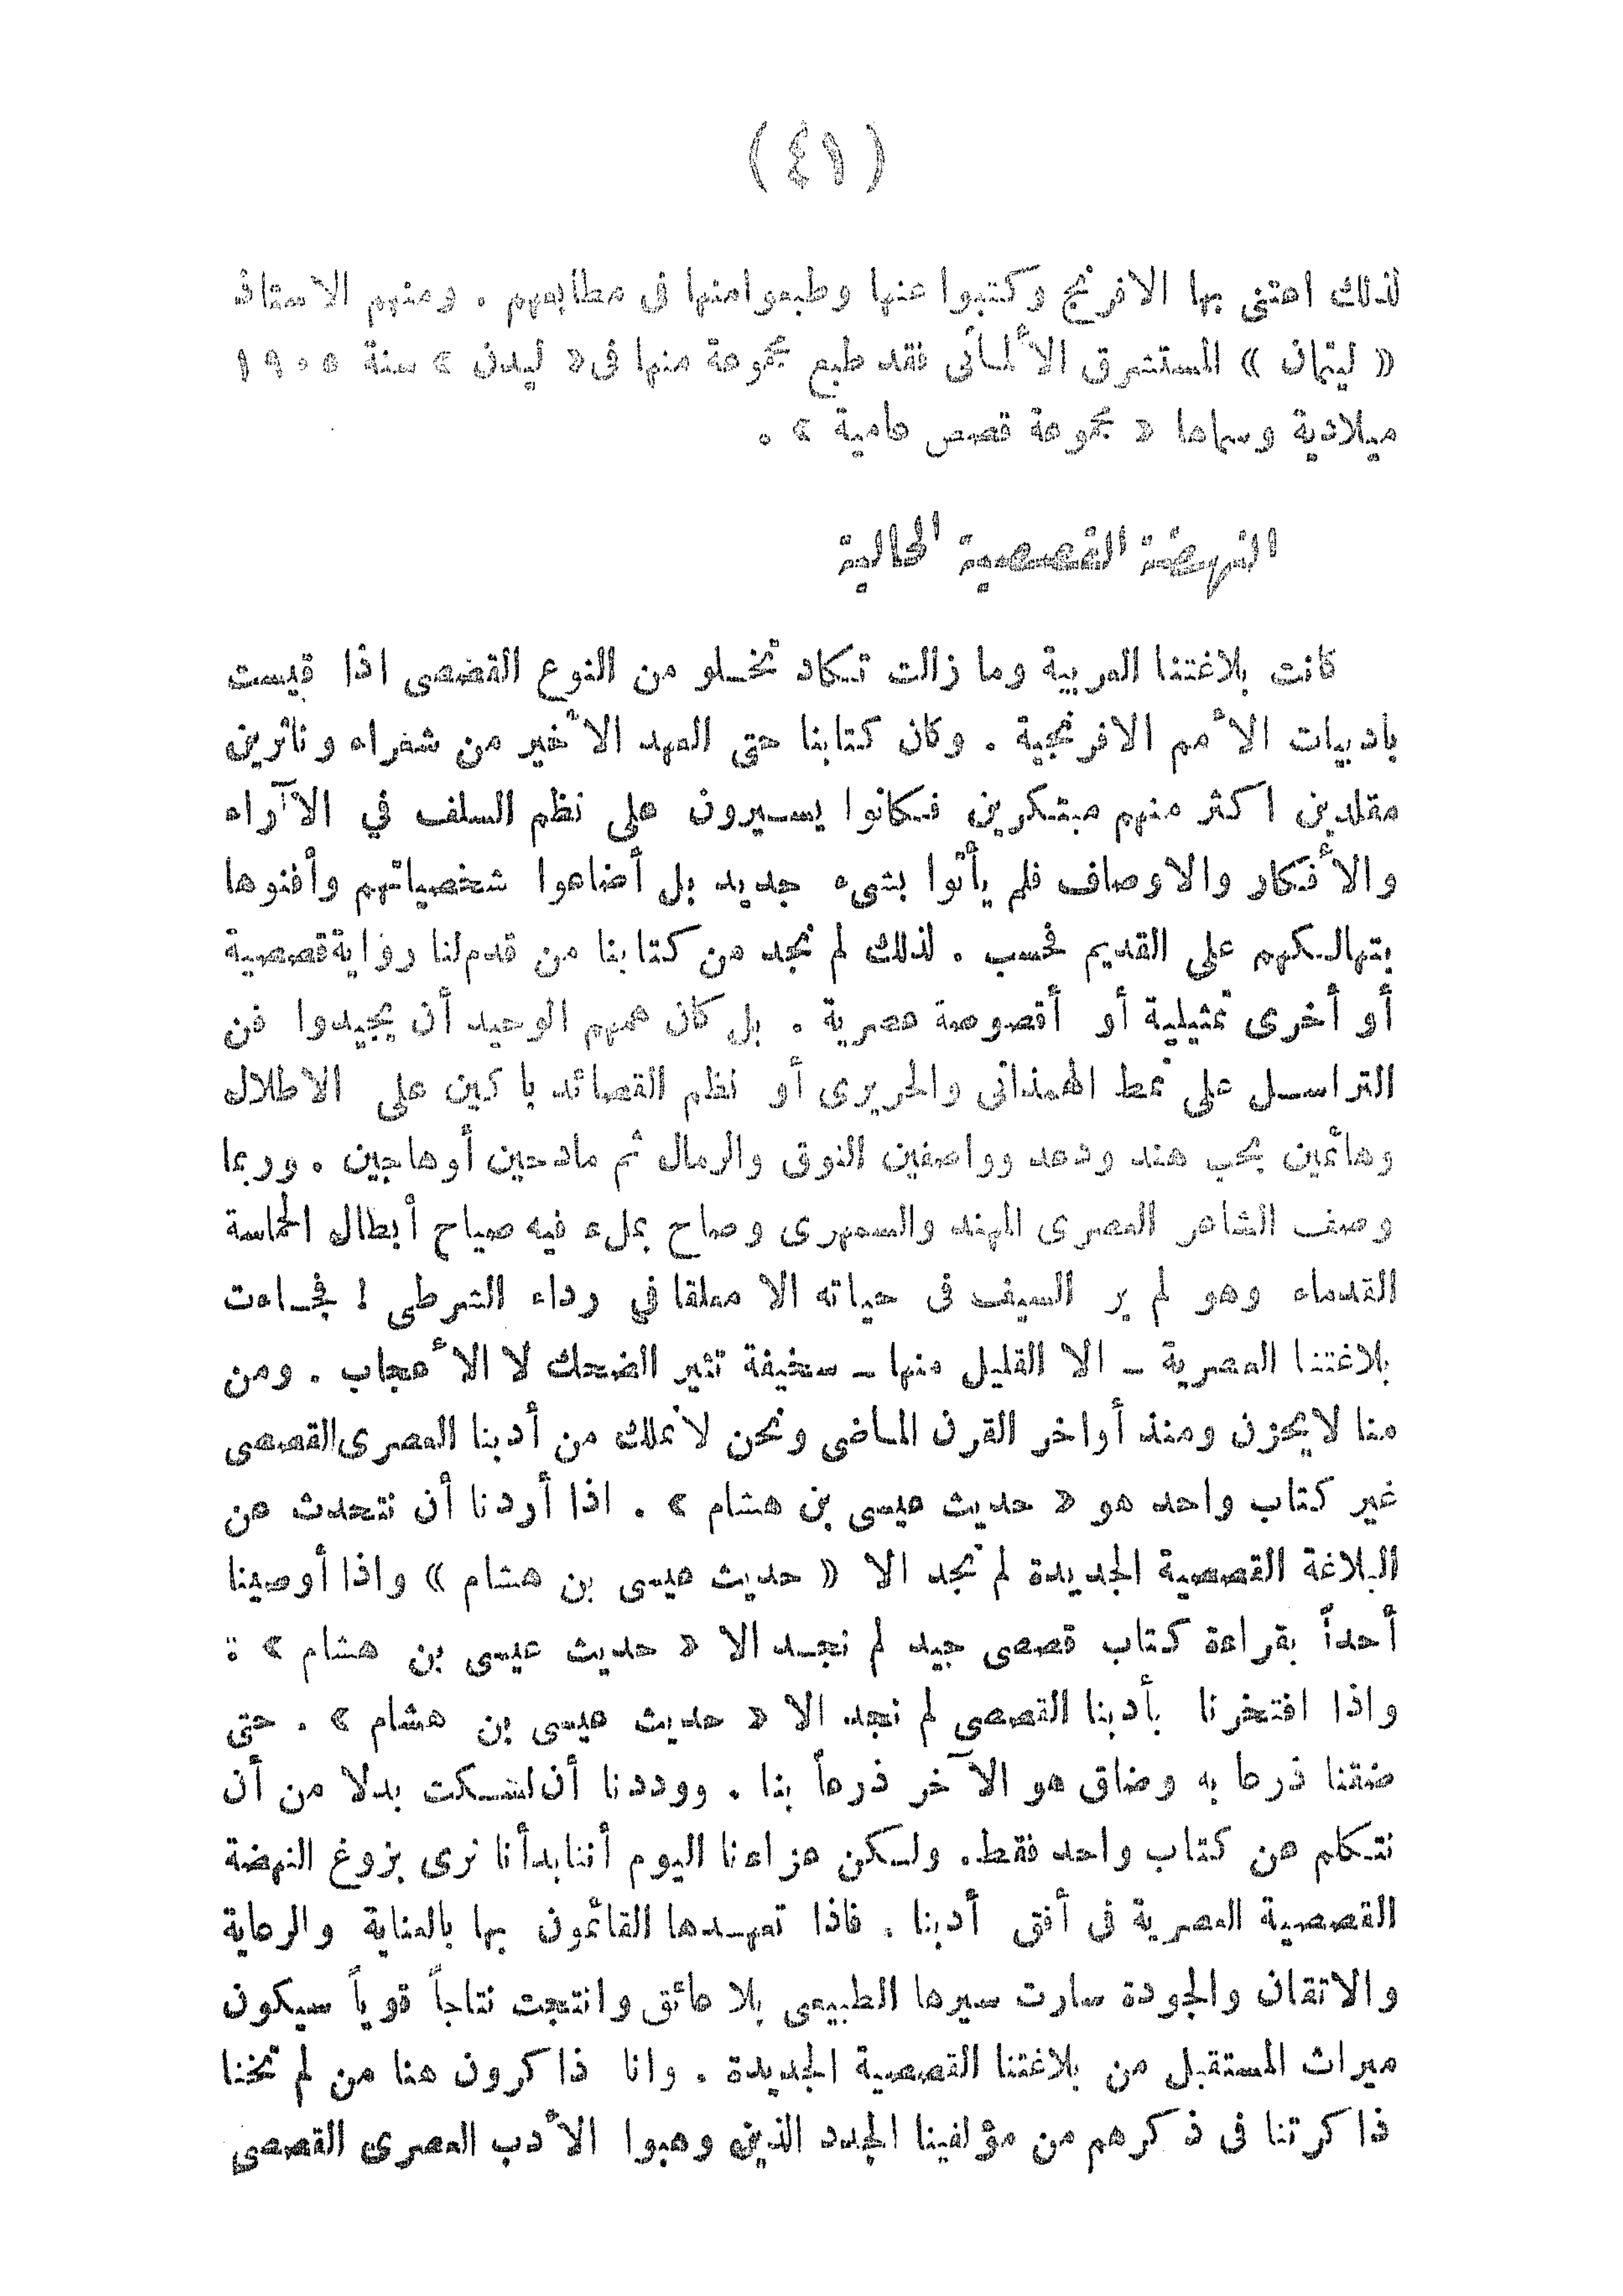 (٤١)
لذلك اعتنى بها الافرنج وكتبوا عنها وطبعوا منها فى مطابعهم . ومنهم الاستاذ
« ليتمان » المستشرق الألمانى فقد طبع مجموعة منها فى « ليدن » سنة ١٩٠٥
ميلادية وسماها « مجموعة قصص عامية » .
النهضة القصصية الحالية
كانت بلاغتنا العربية وما زالت تكاد تخلو من النوع القصصى اذا قيست
بادبيات الأمم الافرنجية . وكان كتابنا حتى العهد الأخير من شعراء وناثرين
مقلدين اكثر منهم مبتكرين فكانوا يسيرون على نظم السلف في الآراء
والأفكار والاوصاف فلم يأتوا بشىء جديد بل أضاعوا شخصياتهم وأفنوها
بتهالكهم على القديم فحسب . لذلك لم نجد من كتابنا من قدم لنا رواية قصصية
أو أخرى تمثيلية أو أقصوصة عصرية . بل كان همهم الوحيد أن يجيدوا فن
التراسل على نمط الهمذانى والحريرى أو نظم القصائد باكين على الاطلال
وهائمين بحب هند ودعد وواصفين النوق والرمال ثم مادحين أوهاجين . وربما
وصف الشاعر العصرى المهند والسمهرى وصاح بملء فيه صياح أبطال الحماسة
القدماء وهو لم ير السيف فى حياته الا معلقا في رداء الشرطى ! فجاءت
بلاغتنا العصرية – الا القليل منها – سخيفة تثير الضحك لا الأعجاب . ومن
منا لايحزن ومنذ أواخر القرن الماضى ونحن لانملك من أدبنا العصرى القصصى
غير كتاب واحد هو « حديث عيسى بن هشام » . اذا أردنا أن نتحدث عن
البلاغة القصصية الجديدة لم نجد الا « حديث عيسى بن هشام » واذا أوصينا
أحداً بقراءة كتاب قصصى جيد لم نجد الا « حديث عيسى بن هشام » :
واذا افتخرنا بأدبنا القصصى لم نجد الا « حديث عيسى بن هشام » . حتى
ضقنا ذرعا به وضاق هو الآخر ذرعاً بنا . ووددنا أن لنسكت بدلا من أن
نتكلم عن كتاب واحد فقط. ولكن عزاءنا اليوم أننا بدأنا نرى بزوغ النهضة
القصصية العصرية فى أفق أدبنا . فاذا تعهدها القائمون بها بالعناية والرعاية
والاتقان والجودة سارت سيرها الطبيعى بلا عائق وانتجت نتاجاً قوياً سيكون
ميراث المستقبل من بلاغتنا القصصية الجديدة . وانا ذاكرون هنا من لم تخنا
ذاكرتنا فى ذكرهم من مؤلفينا الجدد الذين وهبوا الأدب العصرى القصصى